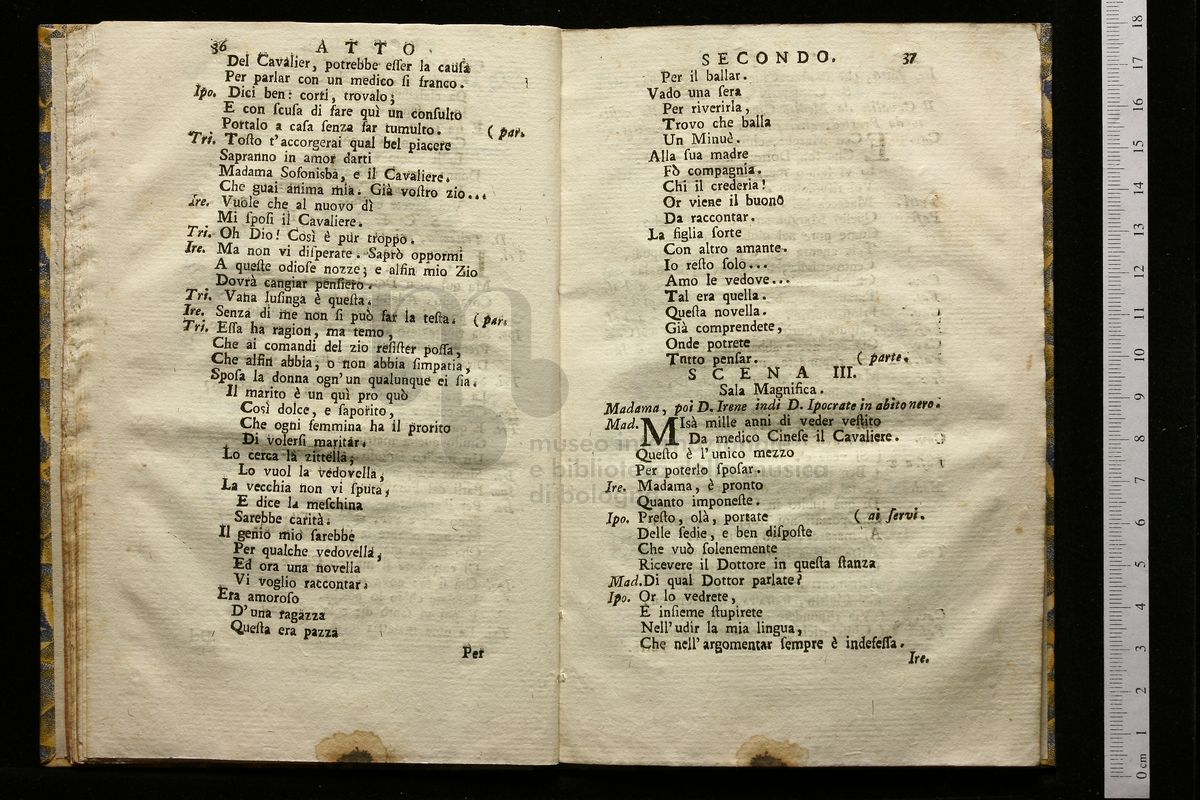 36 ATTO
Del Cavalier, potrebbe eſſer la cauſa
Per parlar con un medico ſi franco.
Ipo. Dici ben: corri, trovalo;
E con ſcuſa di fare quì un conſulto
Portalo a caſa ſenza far tumulto. (par.
Tri. Toſto t'accorgerai qual bel piacere
Sapranno in amor darti
Madama Sofonisba, e il Cavaliere.
Che guai anima mia. Già voſtro zio...
Ire. Vuole che al nuovo dì
Mi ſpoſi il Cavaliere.
Tri. Oh Dio! Così è pur troppo.
Ire. Ma non vi diſperate. Saprò oppormi
A queſte odioſe nozze; e alfin mio Zio
Dovrà cangiar penſiero.
Tri. Vana luſinga è queſta.
Ire. Senza di me non ſi può far la teſta. (par.
Tri. Eſſa ha ragion, ma temo,
Che ai comandi del zio reſiſter poſſa,
Che alfin abbia, o non abbia ſimpatia,
Spoſa la donna ogn'un qualunque ei ſia.
Il marito è un quì pro quò
Così dolce, e ſaporito,
Che ogni femmina ha il prorito
Di volerſi maritar.
Lo cerca la zittella,
Lo vuol la vedovella,
La vecchia non vi ſputa,
E dice la meſchina
Sarebbe carità.
Il genio mio ſarebbe
Per qualche vedovella,
Ed ora una novella
Vi voglio raccontar.
Era amoroſo
D'una ragazza
Queſta era pazza
Per
SECONDO. 37
Per il ballar.
Vado una ſera
Per riverirla,
Trovo che balla
Un Minuè.
Alla ſua madre
Fò compagnia.
Chi il crederia!
Or viene il buono
Da raccontar.
La figlia ſorte
Con altro amante.
Io reſto ſolo...
Amo le vedove...
Tal era quella.
Queſta novella.
Già comprendete,
Onde potrete
Tutto penſar. (parte.
SCENA III.
Sala Magnifica.
Madama, poi D. Irene indi D. Ipocrate in abito nero.
Mad. MIsà mille anni di veder veſtito
Da medico Cineſe il Cavaliere.
Queſto è l'unico mezzo
Per poterlo ſpoſar.
Ire. Madama, è pronto
Quanto imponeſte.
Ipo. Preſto, olà, portate (ai ſervi.
Delle ſedie, e ben diſpoſte
Che vuò ſolenemente
Ricevere il Dottore in queſta ſtanza
Mad. Di qual Dottor parlate?
Ipo. Or lo vedrete,
E inſieme ſtupirete
Nell'udir la mia lingua,
Che nell'argomentar ſempre è indefeſſa.
Ire.
museo in
e bibliote musica
di bologna
0 cm 1 2 3 4 5 6 7 8 9 10 11 12 13 14 15 16 17 18